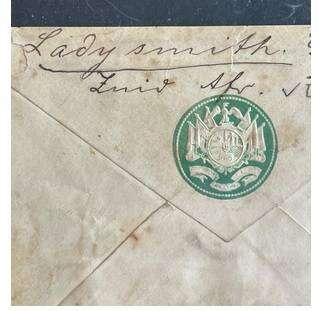 Ladysmith.
Zuid Afr.